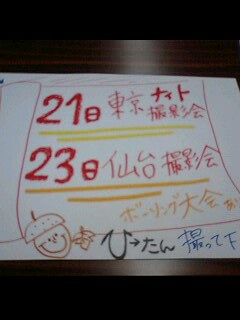 21日東京ナイト撮影会
23日仙台撮影会
ボーリング大会
ひ→たん 撮って下